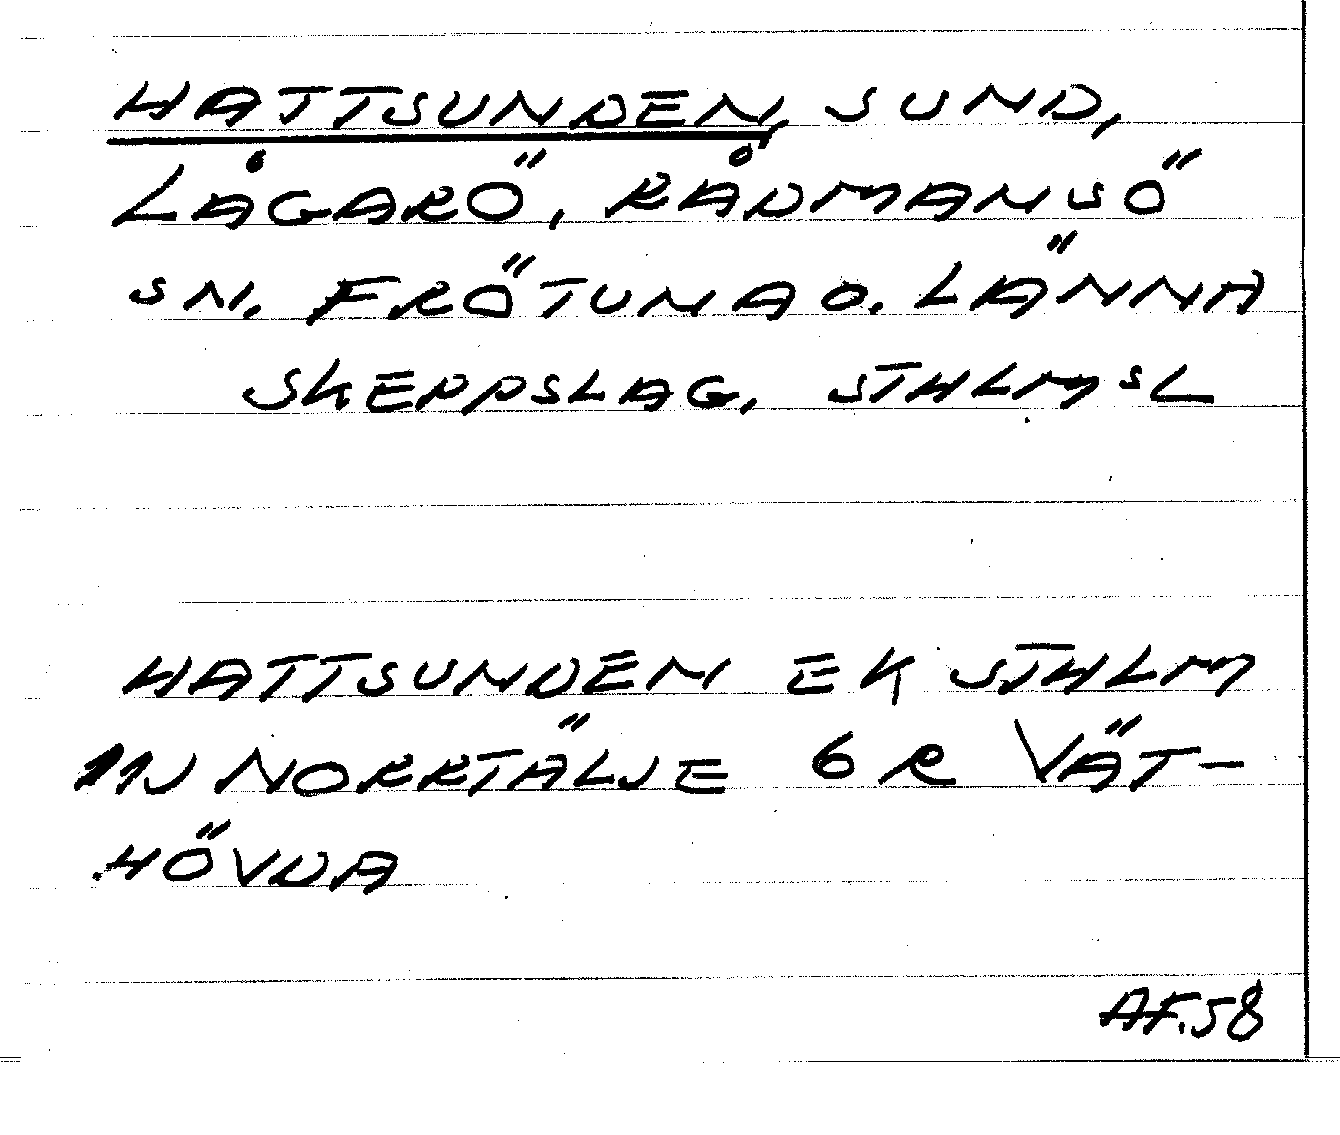 HATTSUNDEN, SUND,
LÅGARÖ, RÅDMANSÖ
SN. FRÖTUNA O. LÄNNA
SKEPPSLAG, STHLMSL
HATTSUNDEN EK STHLM
11J NORRTÄLJE 6R VÄT-
HÖVDA
AF.58